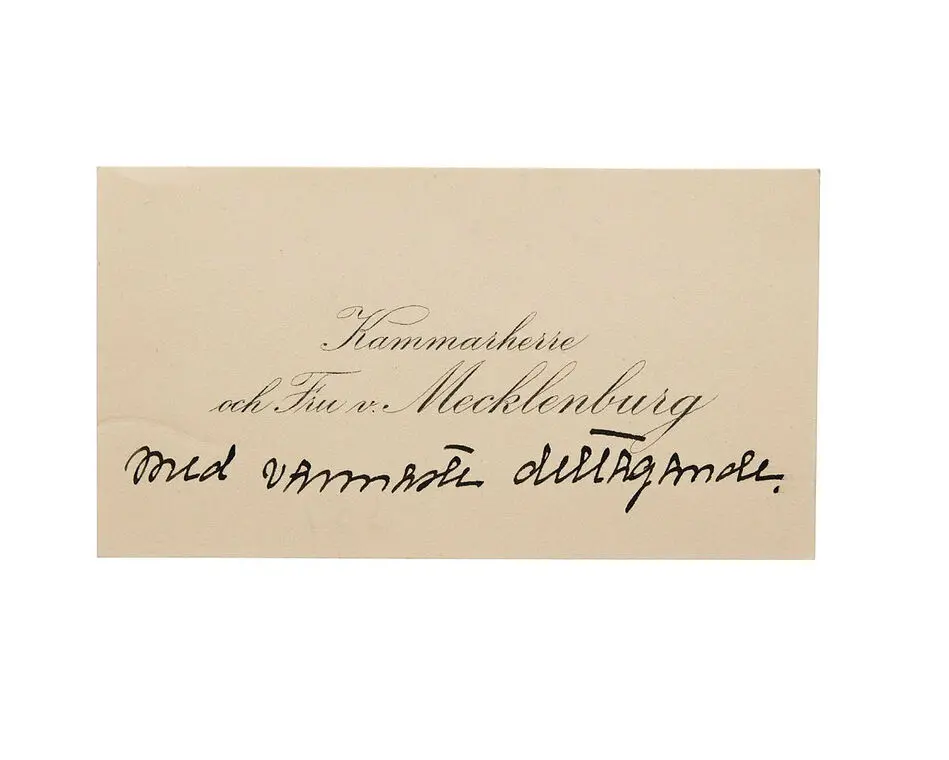 Kammarherre
och Fru v. Mecklenburg
med varmaste deltagande.